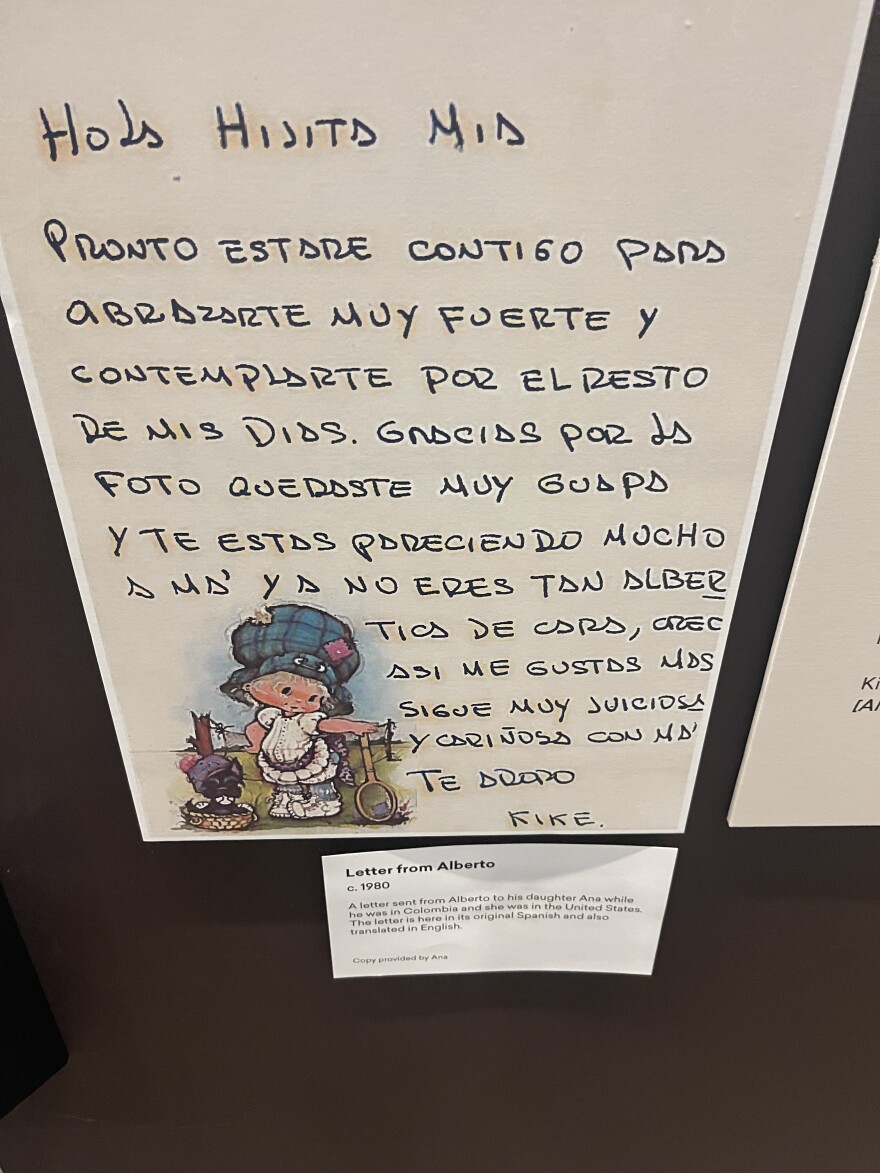 HOLA HIJITA MIA
PRONTO ESTARE CONTIGO PARA
ABRAZARTE MUY FUERTE Y
CONTEMPLARTE POR EL RESTO
DE MIS DIAS. GRACIAS POR LA
FOTO QUEDASTE MUY GUAPA
Y TE ESTAS PARECIENDO MUCHO
A MA' Y A NO ERES TAN ALBER
TICA DE CARA, CREC
ASI ME GUSTAS MAS
SIGUE MUY JUICIOSA
Y CARIÑOSA CON MA'
TE ADORO
KIKE.
Letter from Alberto
c. 1980
A letter sent from Alberto to his daughter Ana while
he was in Colombia and she was in the United States.
The letter is here in its original Spanish and also
translated in English.
Copy provided by Ana